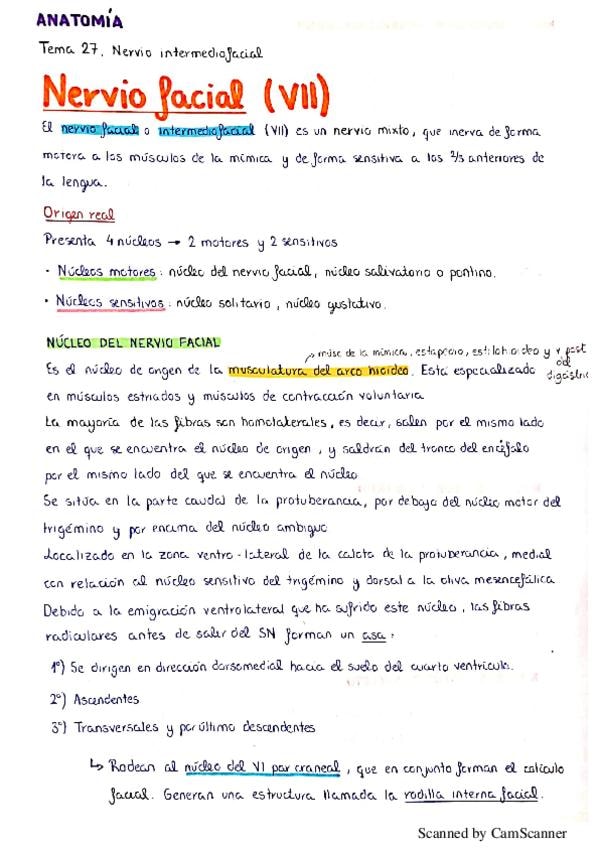 ANATOMÍA
Tema 27. Nervio intermediofacial
Nervio facial (VII)
El nervio facial o intermediofacial (VII) es un nervio mixto, que inerva de forma
motora a los músculos de la mímica y de forma sensitiva a los 2/3 anteriores de
la lengua.
Origen real
Presenta 4 núcleos → 2 motores y 2 sensitivos
· Núcleos motores: núcleo del nervio facial, núcleo salivatorio o pontino.
· Núcleos sensitivos: núcleo solitario, núcleo gustativo.
NÚCLEO DEL NERVIO FACIAL
→ músc de la mímica, estapedio, estilohioideo y v. post del digástrico
Es el núcleo de origen de la musculatura del arco hioideo. Está especializado
en músculos estriados y músculos de contracción voluntaria
La mayoría de las fibras son homolaterales, es decir, salen por el mismo lado
en el que se encuentra el núcleo de origen, y saldrán del tronco del encéfalo
por el mismo lado del que se encuentra el núcleo
Se sitúa en la parte caudal de la protuberancia, por debajo del núcleo motor del
trigémino y por encima del núcleo ambiguo
Localizado en la zona ventro-lateral de la calota de la protuberancia, medial
con relación al núcleo sensitivo del trigémino y dorsal a la oliva mesencefálica
Debido a la emigración ventrolateral que ha sufrido este núcleo, las fibras
radiculares antes de salir del SN forman un asa:
1º) Se dirigen en dirección dorsomedial hacia el suelo del cuarto ventrículo.
2º) Ascendentes
3º) Transversales y por último descendentes
↳ Rodean al núcleo del VI par craneal, que en conjunto forman el colículo
facial. Generan una estructura llamada la rodilla interna facial.
Scanned by CamScanner